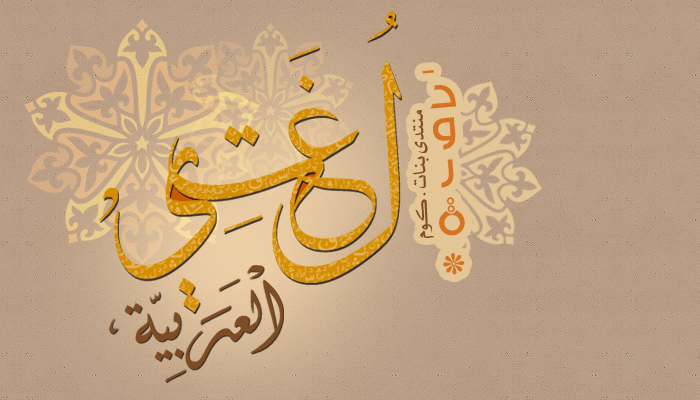 لُغَتِي
الْعَرَبِيَّة ،
منتدى بنات . كوم